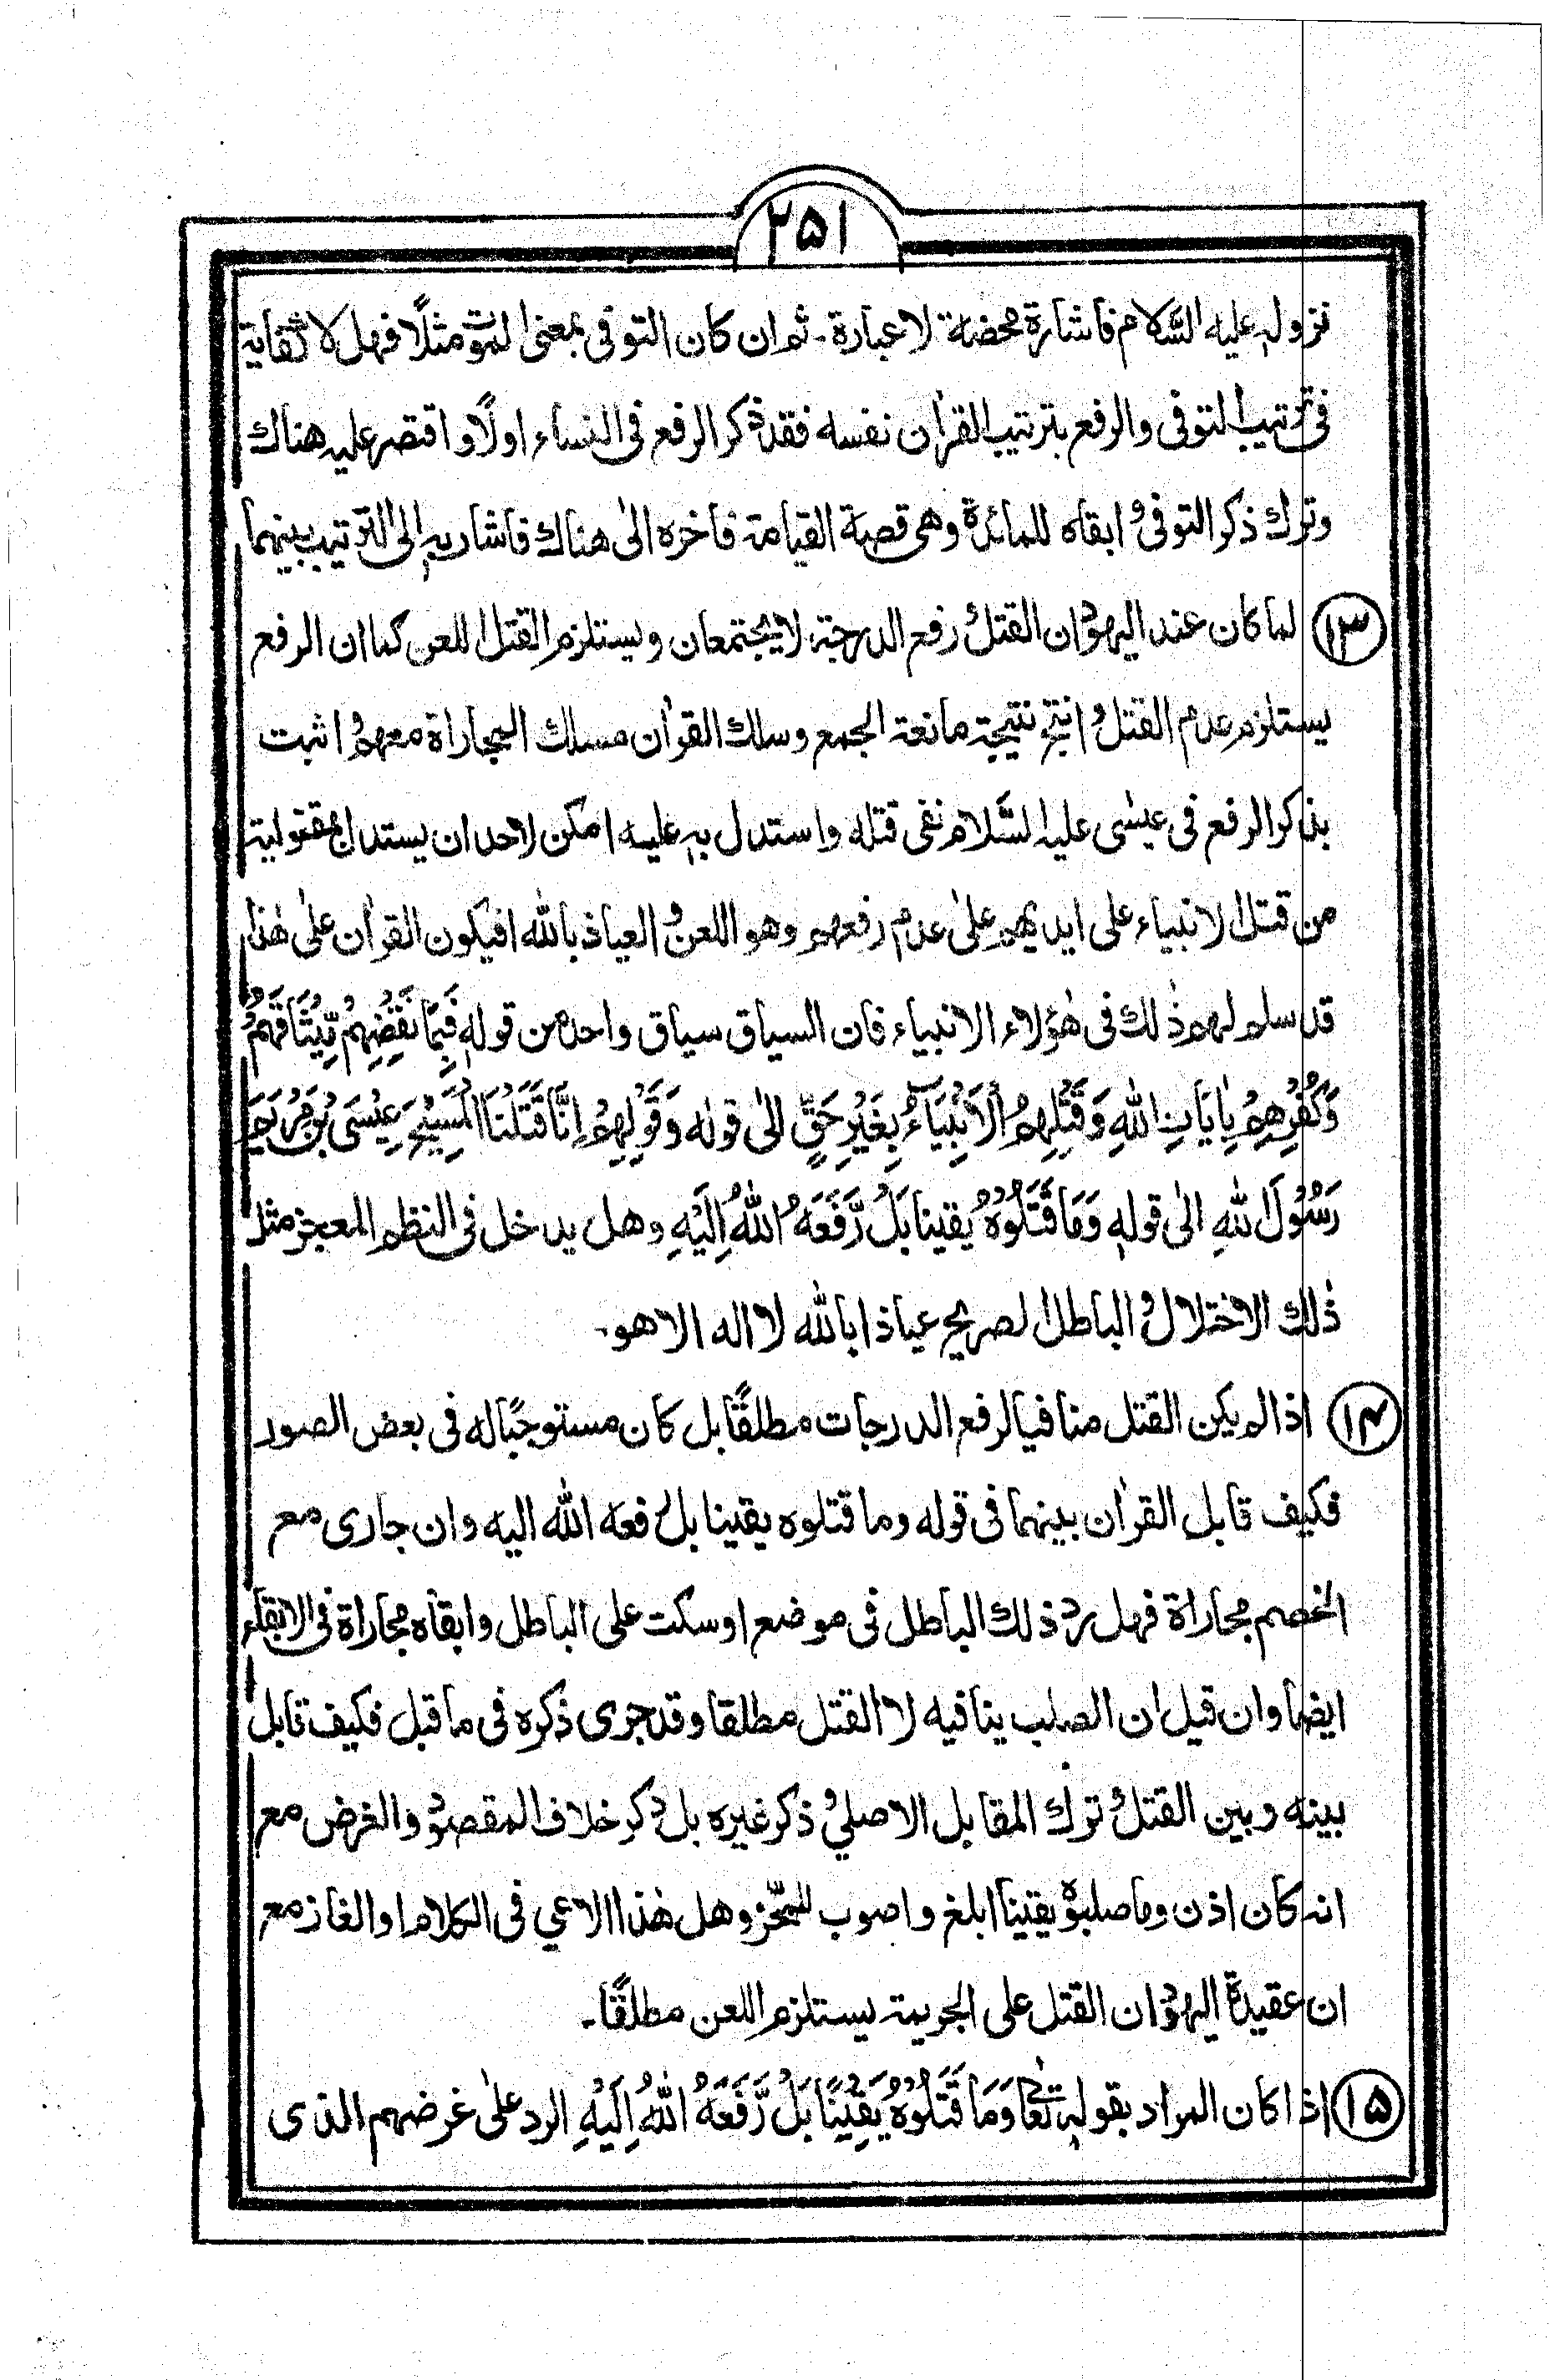 ۲۵۱
نزوله عليه السلام فاشارة محضة لا عبارة۔ ثم ان كان التوفى بمعنى الموت مثلًا فهل لا كفاية
فى ترتيب التوفى والرفع بترتيب القراٰن نفسه فقد ذكر الرفع فى النساء اولًا و اقتصر عليه هناك
وترك ذكر التوفى و ابقاه للمائدة وهى قصة القيامة فاخره الىٰ هناك فاشار به الى الترتيب بينهما
⑬ لما كان عند اليهود ان القتل و رفع الدرجة لا يجتمعان ويستلزم القتل اللعن كما ان الرفع
يستلزم عدم القتل و انتج نتيجة مانعة الجمع وسلك القراٰن مسلك المجاراة معهم و اثبت
بذكر الرفع فى عيسٰى عليه السَّلام نفى قتله واستدل به عليه امكن لاحد ان يستدل بمقتولية
من قتل الانبياء على ايديهم علىٰ عدم رفعهم وهو اللعن و العياذ بالله افيكون القراٰن علىٰ هٰذا
قد سلم لهم ذٰلك فى هٰؤلاء الانبياء فان السياق سياق واحد من قوله فَبِمَا نَقْضِهِمْ مِّيْثَاقَهُمْ
وَكُفْرِهِمْ بِاٰيَاتِ اللهِ وَقَتْلِهِمُ الْاَنْبِيَاءَ بِغَيْرِ حَقٍّ الىٰ قوله وَقَوْلِهِمْ اِنَّا قَتَلْنَا الْمَسِيْحَ عِيْسَى بْنَ مَرْيَمَ
رَسُوْلَ اللهِ الىٰ قوله وَمَا قَتَلُوْهُ يقينا بَلْ رَّفَعَهُ اللهُ اِلَيْهِ وهل يدخل فى النظم المعجز مثل
ذٰلك الاختلال و الباطل الصريح عياذا بالله لا اله الا هو۔
⑭ اذا لم يكن القتل منافيا لرفع الدرجات مطلقًا بل كان مستوجبًا له فى بعض الصور
فكيف قابل القراٰن بينهما فى قوله وما قتلوه يقينا بل رفعه الله اليه وان جارى مع
الخصم مجاراة فهل رد ذلك الباطل فى موضع او سكت على الباطل وابقاه مجاراة فى الابقاء
ايضا وان قيل ان الصلب ينافيه لا القتل مطلقا وقد جرى ذكره فى ما قبل فكيف قابل
بينه وبين القتل و ترك المقابل الاصلي و ذكر غيره بل ذكر خلاف المقصود والغرض مع
انه كان اذن وما صلبوه يقينا ابلغ واصوب للمحز وهل هٰذا الا عي فى الكلام او الغاز مع
ان عقيدة اليهود ان القتل على الجريمة يستلزم اللعن مطلقًا۔
⑮ اذا كان المراد بقوله تعالىٰ وَمَا قَتَلُوْهُ يَقِيْنًا بَلْ رَّفَعَهُ اللهُ اِلَيْهِ الرد علىٰ غرضهم الذى